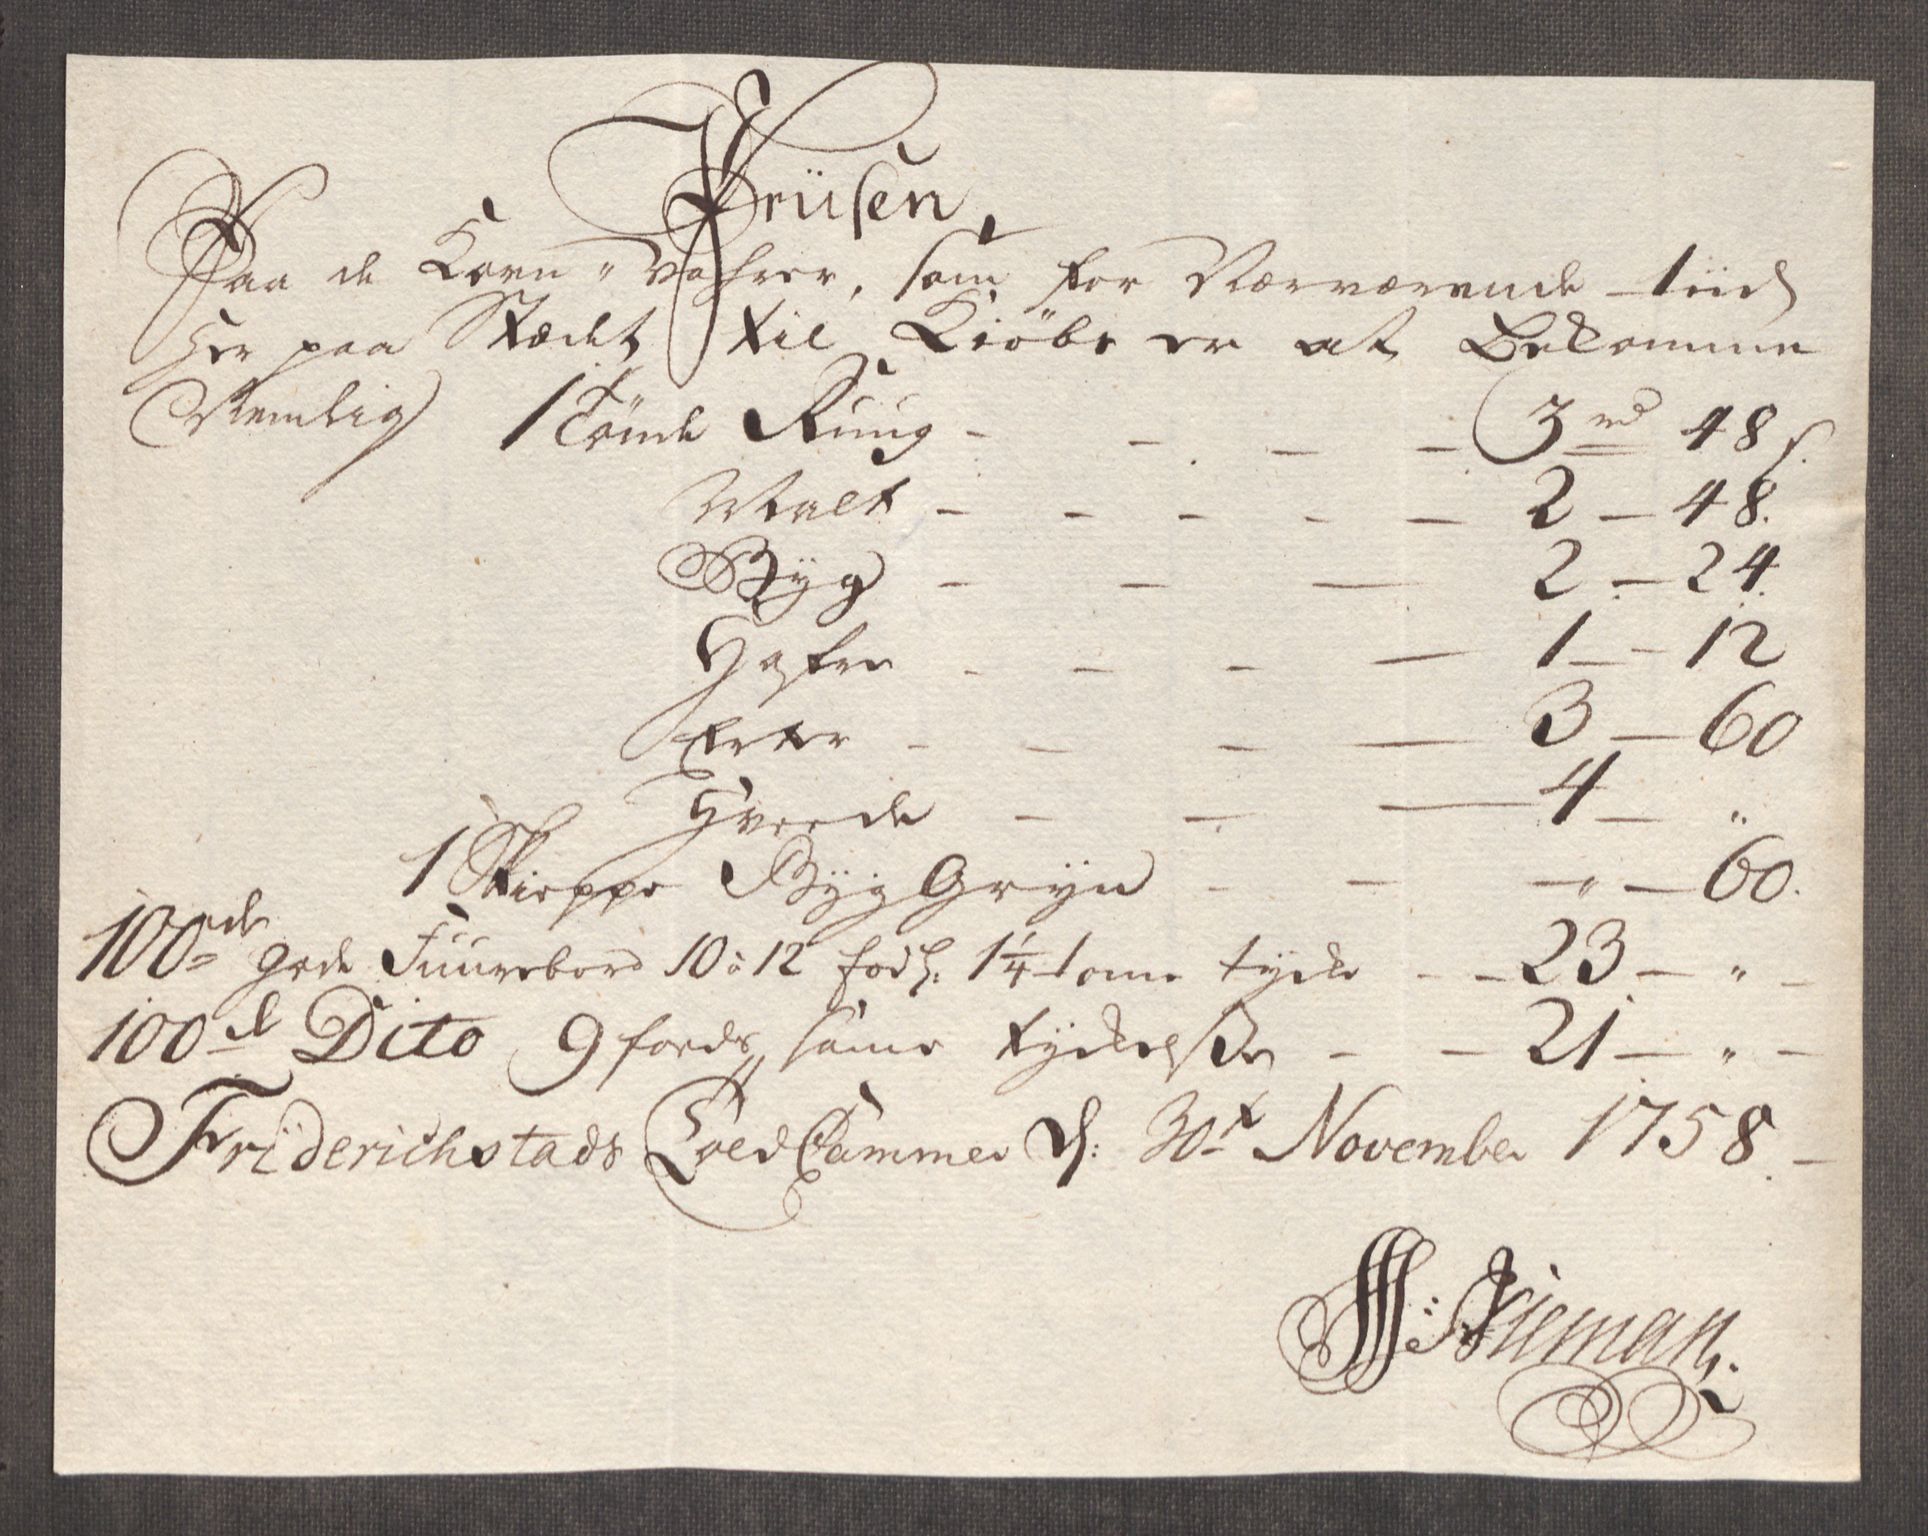 Priisen
Paa de Korn-Vahrer, som for Nærværende tiid
her paa Stædet til Kiöbs er at Bekomme
Nemlig 1 Tönde Ruug - - - - 3 rd 48 s.
Malt - - - - - 2 - 48.
Byg - - - 2 - 24.
Hafre - - - - 1 - 12
Erter - - - - 3 - 60
Hvede - - - 4 - "
1 Skieppe Byg Gryn - - - " - 60.
100de gode Fuurebord 10 à 12 fod h: 1 1/4 tome tycke - - 23 - " -
100de Dito 9 foeds, same tyckelsse - - 21 - " -
Friderichstads Told Cammer d: 30t November 1758. -
H: Nieman.